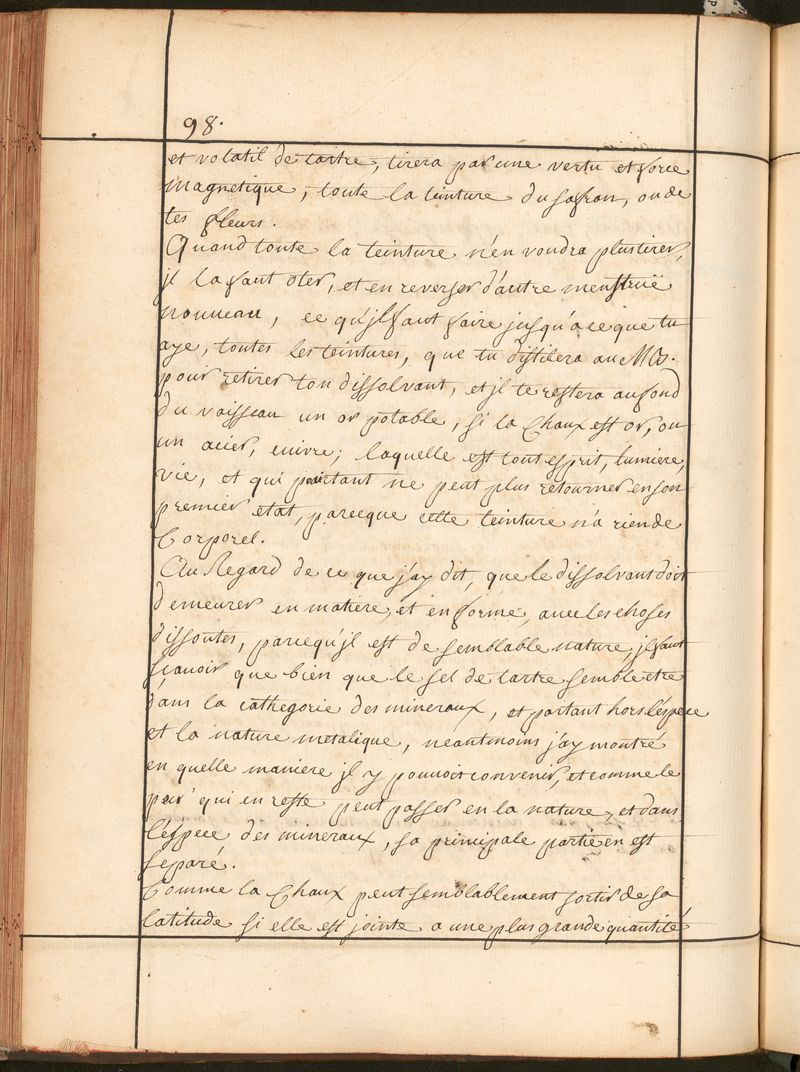 98.
et volatil de tartre, tirera par une vertu et force
magnetique, toute la teinture du safran, ou de
tes fleurs.
Quand toute la teinture n'en voudra plus tirer,
jl la faut oter, et en reverser d'autre menstruë
nouveau, ce qu'jl faut faire jusqu'a ce que tu
aye, toutes les teintures, que tu distilera au MB.
pour retirer ton dissolvant, et jl te restera au fond
du vaisseau un or potable, si la Chaux est or, ou
un acier, cuivre; laquelle est tout esprit, lumiere,
vie, et qui partant ne peut plus retourner en son
premier etat, parceque cette teinture n'a rien de
Corporel.
Au Regard de ce que j'ay dit, que le dissolvant doit
demeurer en matiere, et en forme, avec les choses
dissoutes, parcequ'jl est de semblable nature, jl faut
sçavoir que bien que le sel de tartre semble etre
dans la cathegorie des mineraux, et partant hors l'espece
et la nature metalique, neantmoins j'ay montré
en quelle maniere jl y pouvoit convenir, et comme le
peu qui en reste peut passer en la nature, et dans
l'espece des mineraux, sa principale partie en est
separé.
Comme la Chaux peut semblablement sortir de sa
latitude si elle est jointe a une plus grande quantité